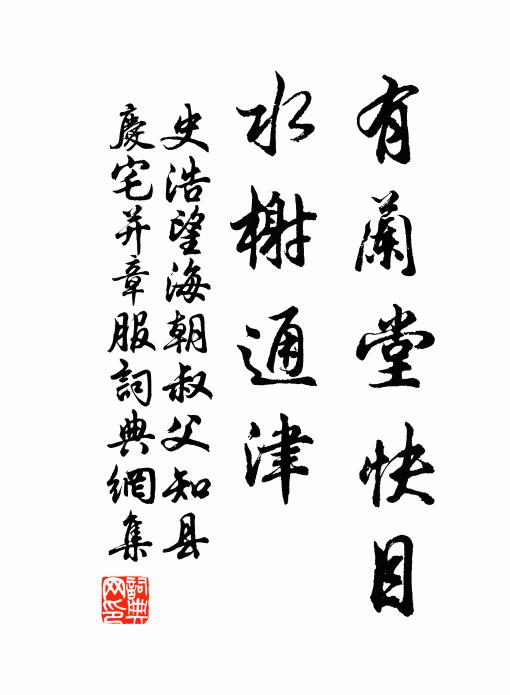 有蘭堂快目
水榭通津
史浩望海朝叔父知县
慶宅并章服詞典網集
詞典网印